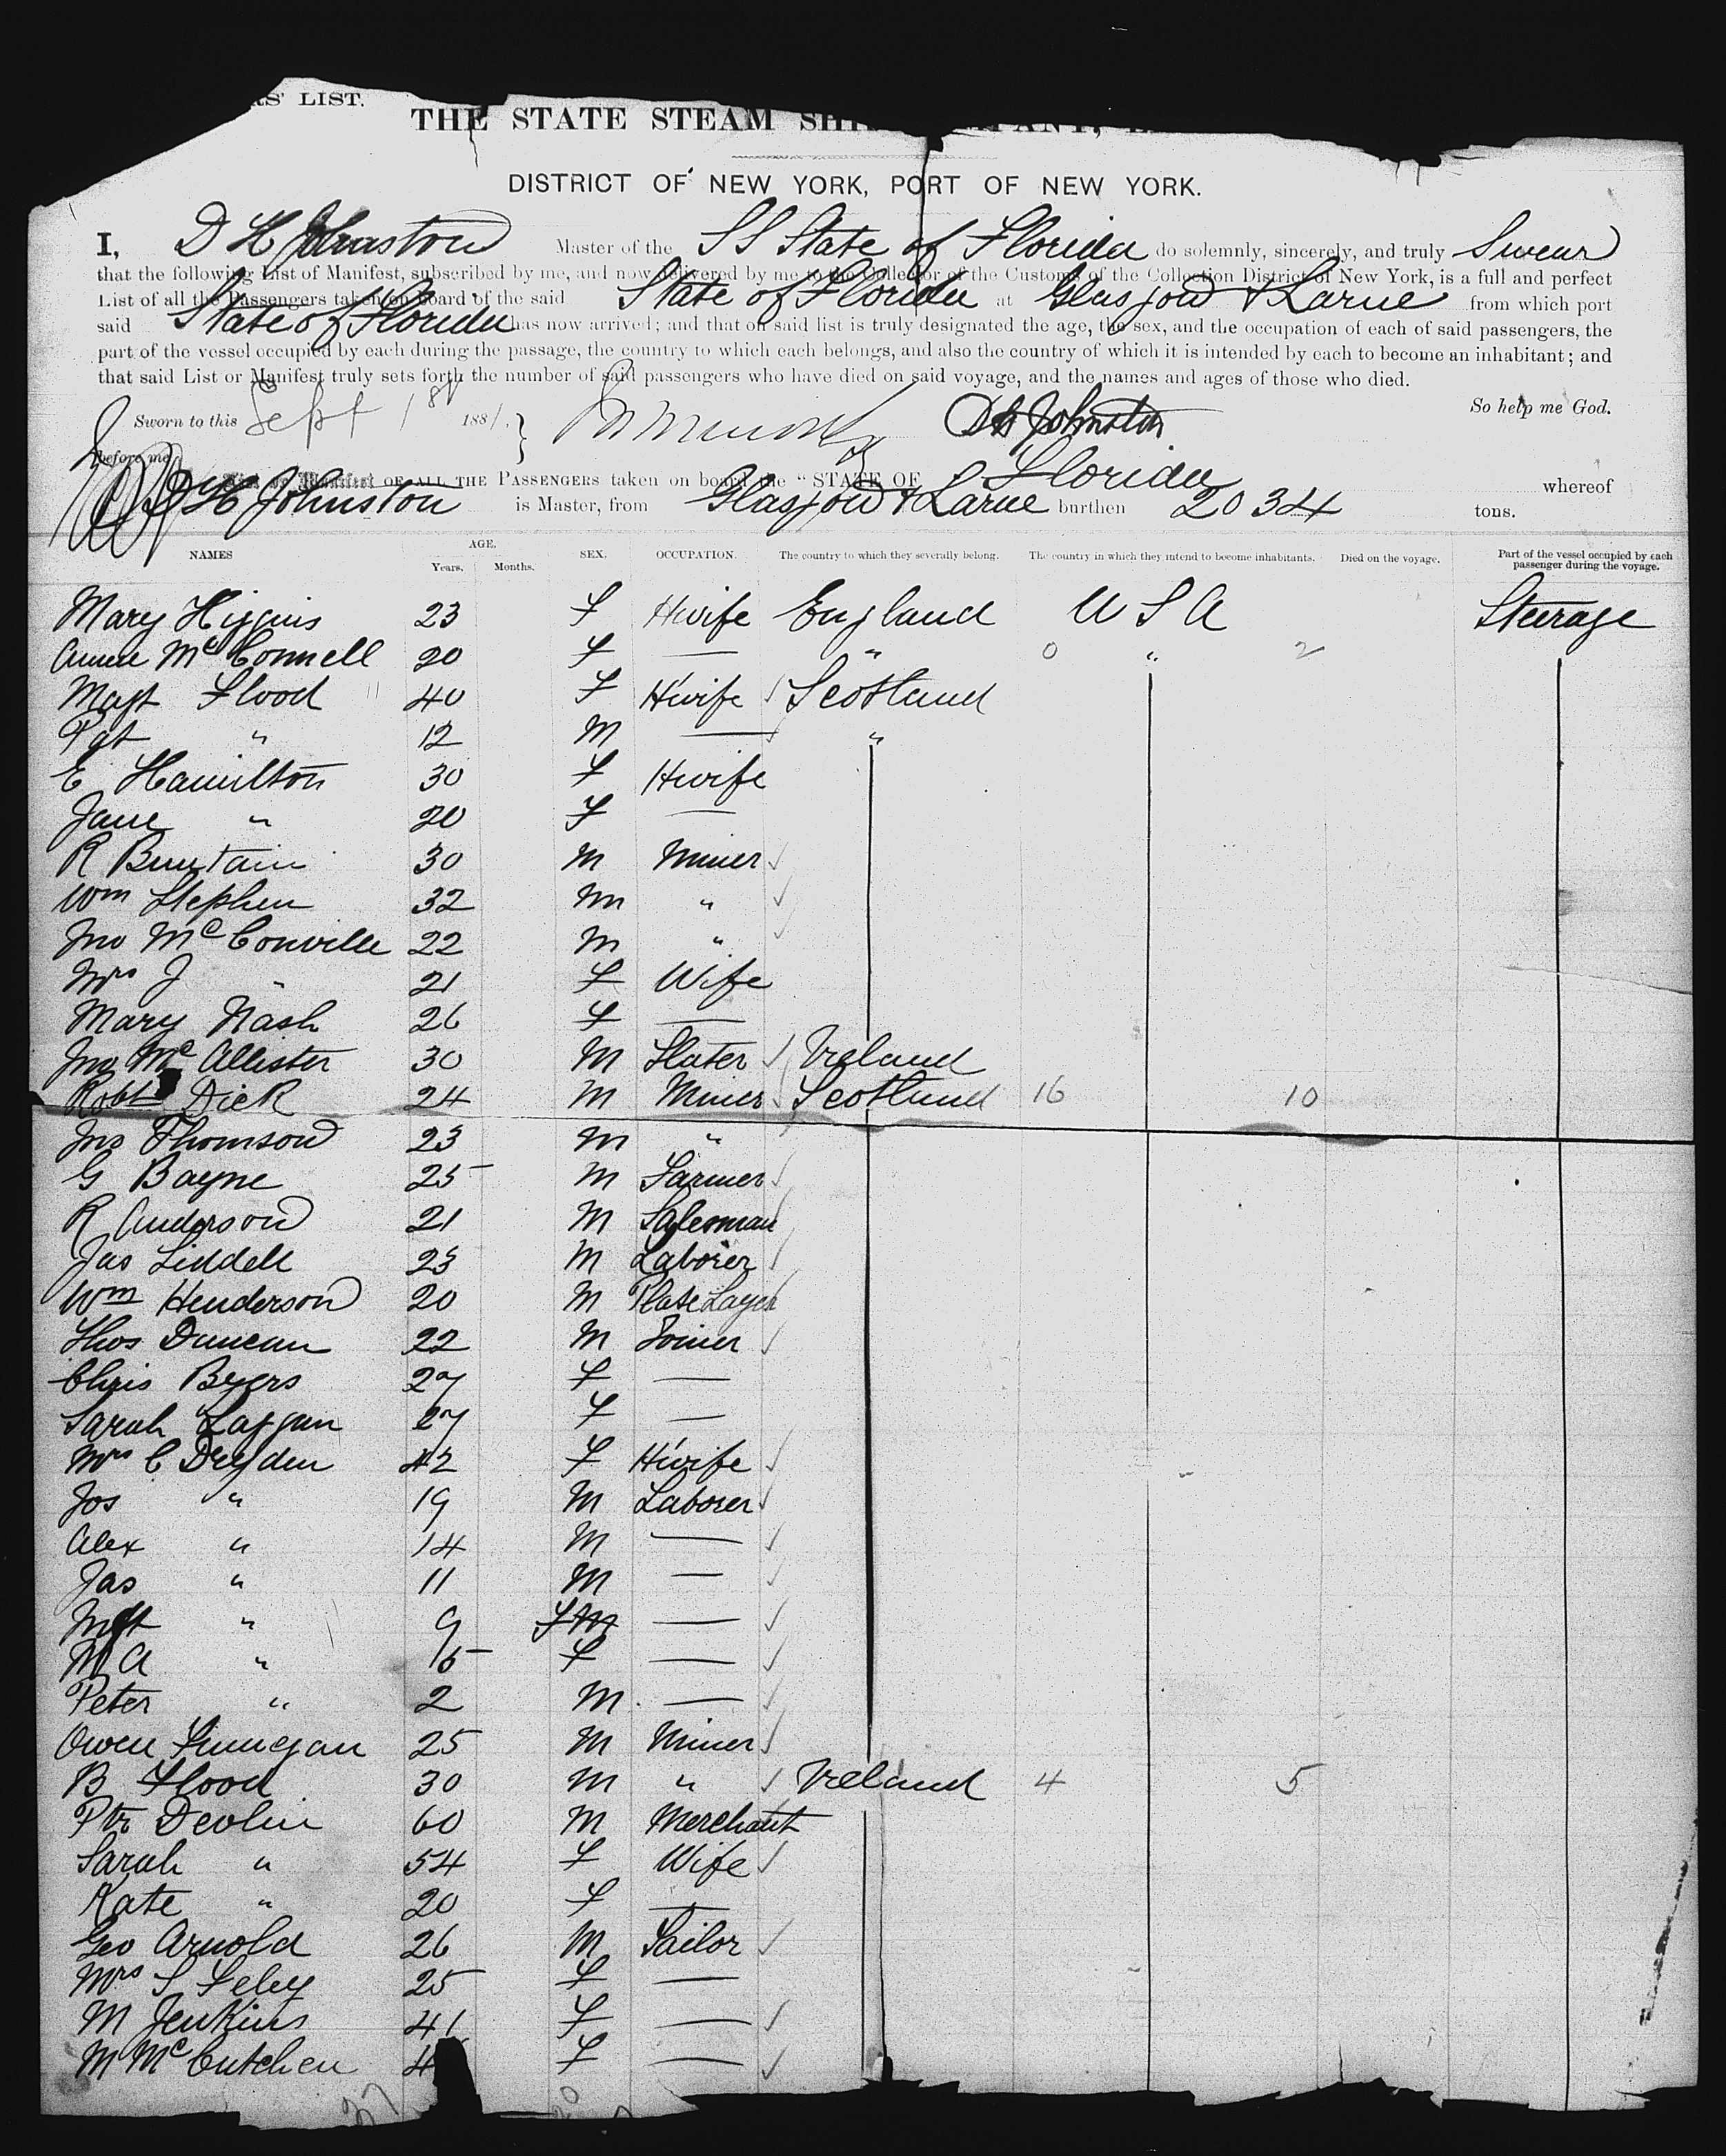 RS' LIST.
THE STATE STEAM SHIP COMPANY, L
DISTRICT OF NEW YORK, PORT OF NEW YORK.
I, D H Johnston Master of the SS State of Florida do solemnly, sincerely, and truly Swear
that the following List of Manifest, subscribed by me, and now delivered by me to the Collector of the Customs of the Collection District of New York, is a full and perfect
List of all the Passengers taken on board of the said State of Florida at Glasgow & Larne from which port
said State of Florida has now arrived; and that on said list is truly designated the age, the sex, and the occupation of each of said passengers, the
part of the vessel occupied by each during the passage, the country to which each belongs, and also the country of which it is intended by each to become an inhabitant; and
that said List or Manifest truly sets forth the number of said passengers who have died on said voyage, and the names and ages of those who died.
So help me God.
Sworn to this Sept 1st 1881. } D H Johnston
before me
List or Manifest OF ALL THE PASSENGERS taken on board the "STATE OF Florida whereof
D H Johnston is Master, from Glasgow & Larne burthen 2034 tons.
NAMES AGE. Years. Months. SEX. OCCUPATION. The country to which they severally belong. The country in which they intend to become inhabitants. Died on the voyage. Part of the vessel occupied by each passenger during the voyage.
Mary Higgins 23 F Hwife England U S A Steerage
Annie McConnell 20 F — " 0 " 2
Magt Flood 11 40 F H'wife Scotland
Pgt " 12 M — "
E Hamilton 30 F Hwife
Jane " 20 F —
R Buntain 30 M Miner
Wm Stephen 32 M "
Jno McConville 22 M "
Mrs J " 21 F Wife
Mary Nash 26 F —
Jno McAllister 30 M Slater Ireland
Robt Dick 24 M Miner Scotland 16 10
Jno Thomson 23 M "
G Bayne 25 M Farmer
R Anderson 21 M Salesman
Jas Liddell 23 M Laborer
Wm Henderson 20 M Plate Layer
Thos Duncan 22 M Joiner
Chris Byers 27 F —
Sarah Laggan 27 F —
Mrs C Dryden 42 F H'wife
Jos " 19 M Laborer
Alex " 14 M —
Jas " 11 M —
Mgt " 9 F M —
M A " 5 F —
Peter " 2 M —
Owen Finnegan 25 M Miner
B Flood 30 M " Ireland 4 5
Ptr Devlin 60 M Merchant
Sarah " 54 F Wife
Kate " 20 F —
Geo Arnold 26 M Sailor
Mrs S Seley 25 F —
M Jenkins 41 F —
M McCutchen 4 F —
37 20